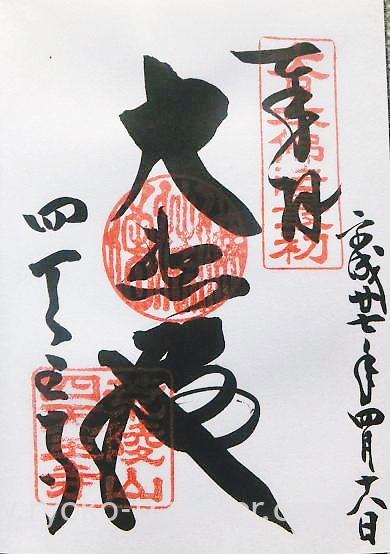 奉拝
平成廿七年四月十八日
大悲殿
四天王寺
荒陵山
四天王寺